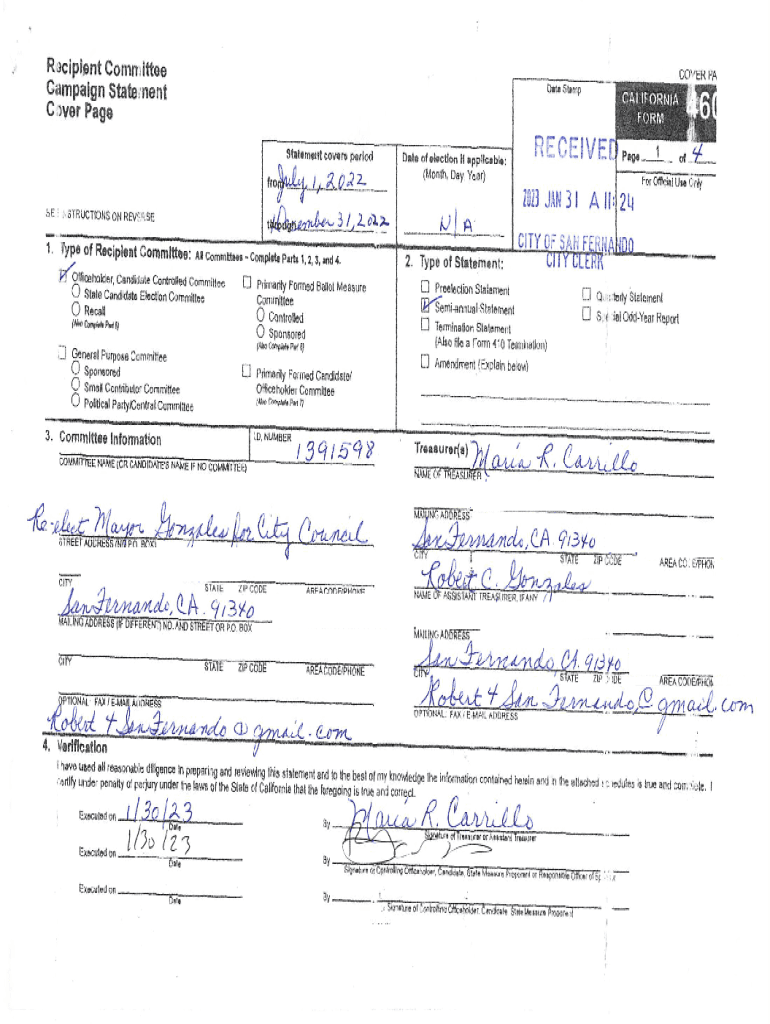 COVER PA
Recipient Committee
Campaign Statement
Cover Page
Date Stamp
CALIFORNIA
FORM
460
RECEIVED
2023 JAN 31 A 11: 24
CITY OF SAN FERNANDO
CITY CLERK
Page 1 of 4
For Official Use Only
Statement covers period
from July 1, 2022
through December 31, 2022
Date of election if applicable:
(Month, Day, Year)
N/A
SEE INSTRUCTIONS ON REVERSE
1. Type of Recipient Committee: All Committees – Complete Parts 1, 2, 3, and 4.
Officeholder, Candidate Controlled Committee
State Candidate Election Committee
Recall
(Also Complete Part 5)
General Purpose Committee
Sponsored
Small Contributor Committee
Political Party/Central Committee
Primarily Formed Ballot Measure
Committee
Controlled
Sponsored
(Also Complete Part 6)
Primarily Formed Candidate/
Officeholder Committee
(Also Complete Part 7)
2. Type of Statement:
Preelection Statement
Semi-annual Statement
Termination Statement
(Also file a Form 410 Termination)
Amendment (Explain below)
Quarterly Statement
Special Odd-Year Report
3. Committee Information
I.D. NUMBER
1391598
COMMITTEE NAME (OR CANDIDATE'S NAME IF NO COMMITTEE)
Re-elect Mayor Gonzales for City Council
STREET ADDRESS (NO P.O. BOX)
CITY STATE ZIP CODE AREA CODE/PHONE
San Fernando, CA. 91340
MAILING ADDRESS (IF DIFFERENT) NO. AND STREET OR P.O. BOX
CITY STATE ZIP CODE AREA CODE/PHONE
OPTIONAL: FAX / E-MAIL ADDRESS
Robert4SanFernando@gmail.com
Treasurer(s)
Maria R. Carrillo
NAME OF TREASURER
MAILING ADDRESS
San Fernando, CA. 91340
CITY STATE ZIP CODE AREA CODE/PHON
Robert C. Gonzales
NAME OF ASSISTANT TREASURER, IF ANY
MAILING ADDRESS
San Fernando, CA. 91340
CITY STATE ZIP CODE AREA CODE/PHON
Robert4SanFernando@gmail.com
OPTIONAL: FAX / E-MAIL ADDRESS
4. Verification
I have used all reasonable diligence in preparing and reviewing this statement and to the best of my knowledge the information contained herein and in the attached schedules is true and complete. I
certify under penalty of perjury under the laws of the State of California that the foregoing is true and correct.
Executed on 1/30/23
Date
By Maria R. Carrillo
Signature of Treasurer or Assistant Treasurer
Executed on 1/30/23
Date
By
Signature of Controlling Officeholder, Candidate, State Measure Proponent or Responsible Officer of
Executed on
Date
By
Signature of Controlling Officeholder, Candidate, State Measure Proponent